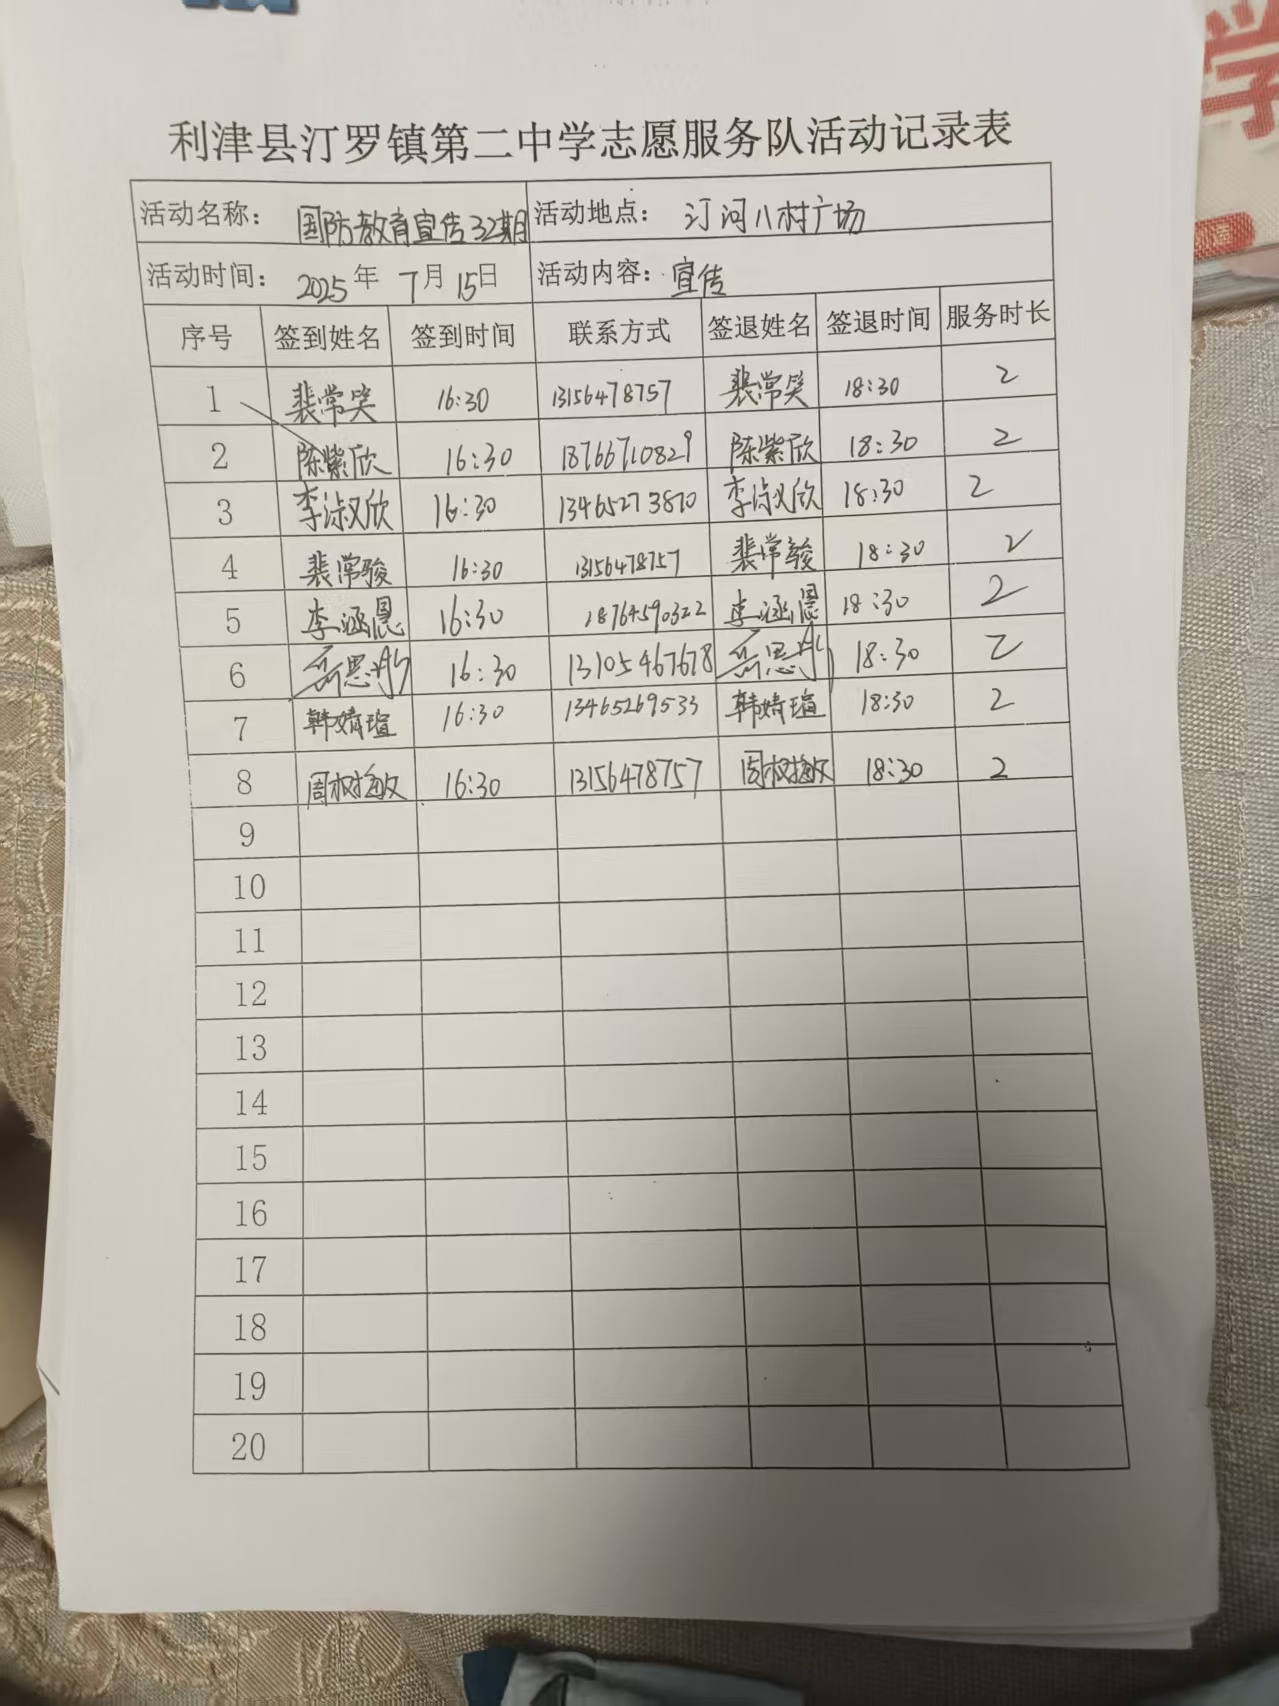 利津县汀罗镇第二中学志愿服务队活动记录表
活动名称: 国防教育宣传32期 活动地点: 汀河八村广场
活动时间: 2025年7月15日 活动内容: 宣传
序号 签到姓名 签到时间 联系方式 签退姓名 签退时间 服务时长
1 裴常笑 16:30 13156478757 裴常笑 18:30 2
2 陈紫欣 16:30 18766710829 陈紫欣 18:30 2
3 李淑欣 16:30 13465273870 李淑欣 18:30 2
4 裴常骏 16:30 13156478757 裴常骏 18:30 2
5 李涵恩 16:30 18764590322 李涵恩 18:30 2
6 16:30 13105467678 18:30 2
7 韩婧瑄 16:30 13465269533 韩婧瑄 18:30 2
8 16:30 13156478757 18:30 2
9
10
11
12
13
14
15
16
17
18
19
20
学